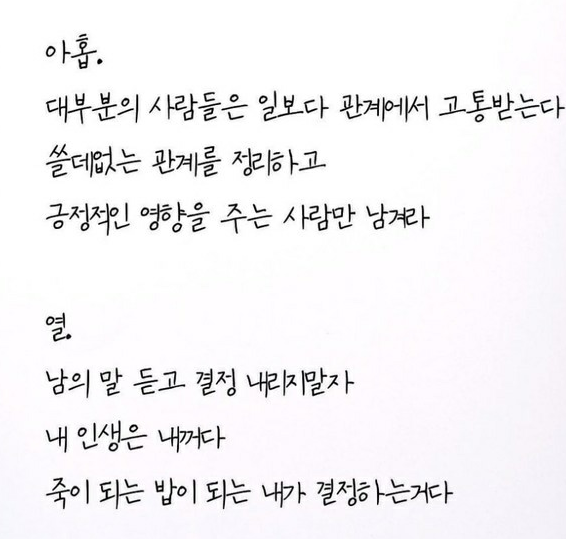 아홉.
대부분의 사람들은 일보다 관계에서 고통받는다
쓸데없는 관계를 정리하고
긍정적인 영향을 주는 사람만 남겨라
열.
남의 말 듣고 결정 내리지말자
내 인생은 내꺼다
죽이 되는 밥이 되는 내가 결정하는거다